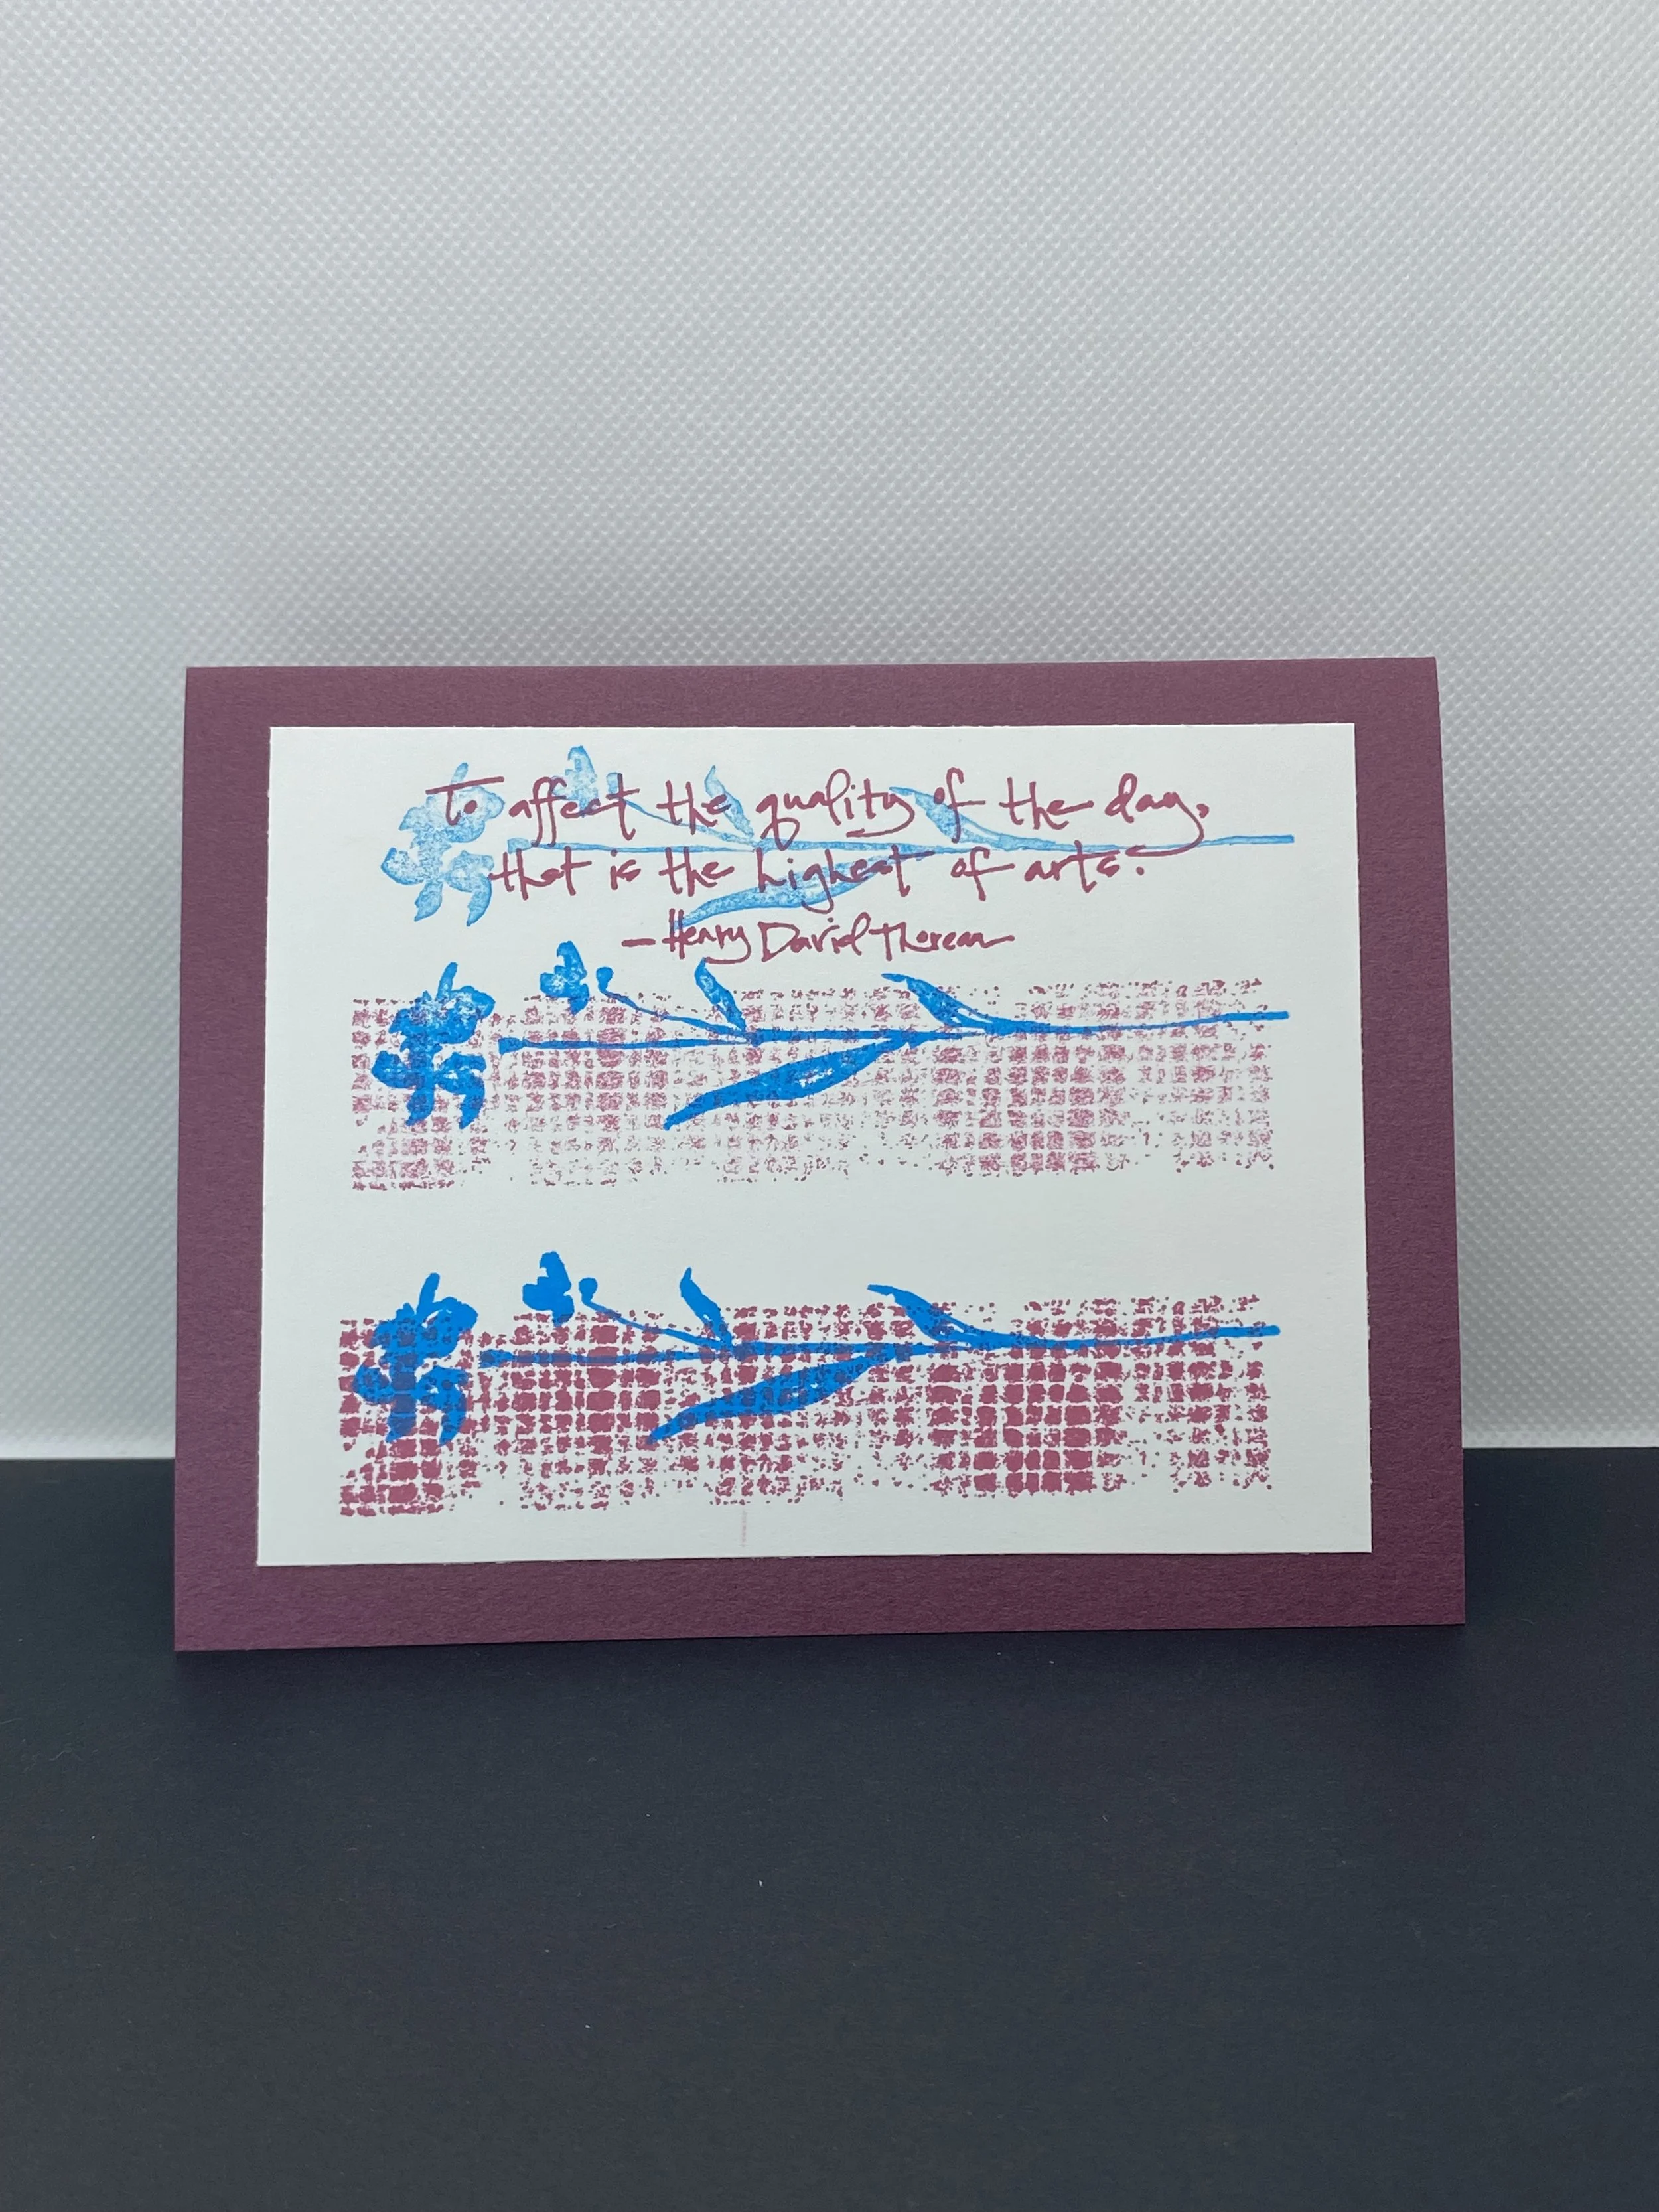 To affect the quality of the day,
that is the highest of arts.
— Henry David Thoreau